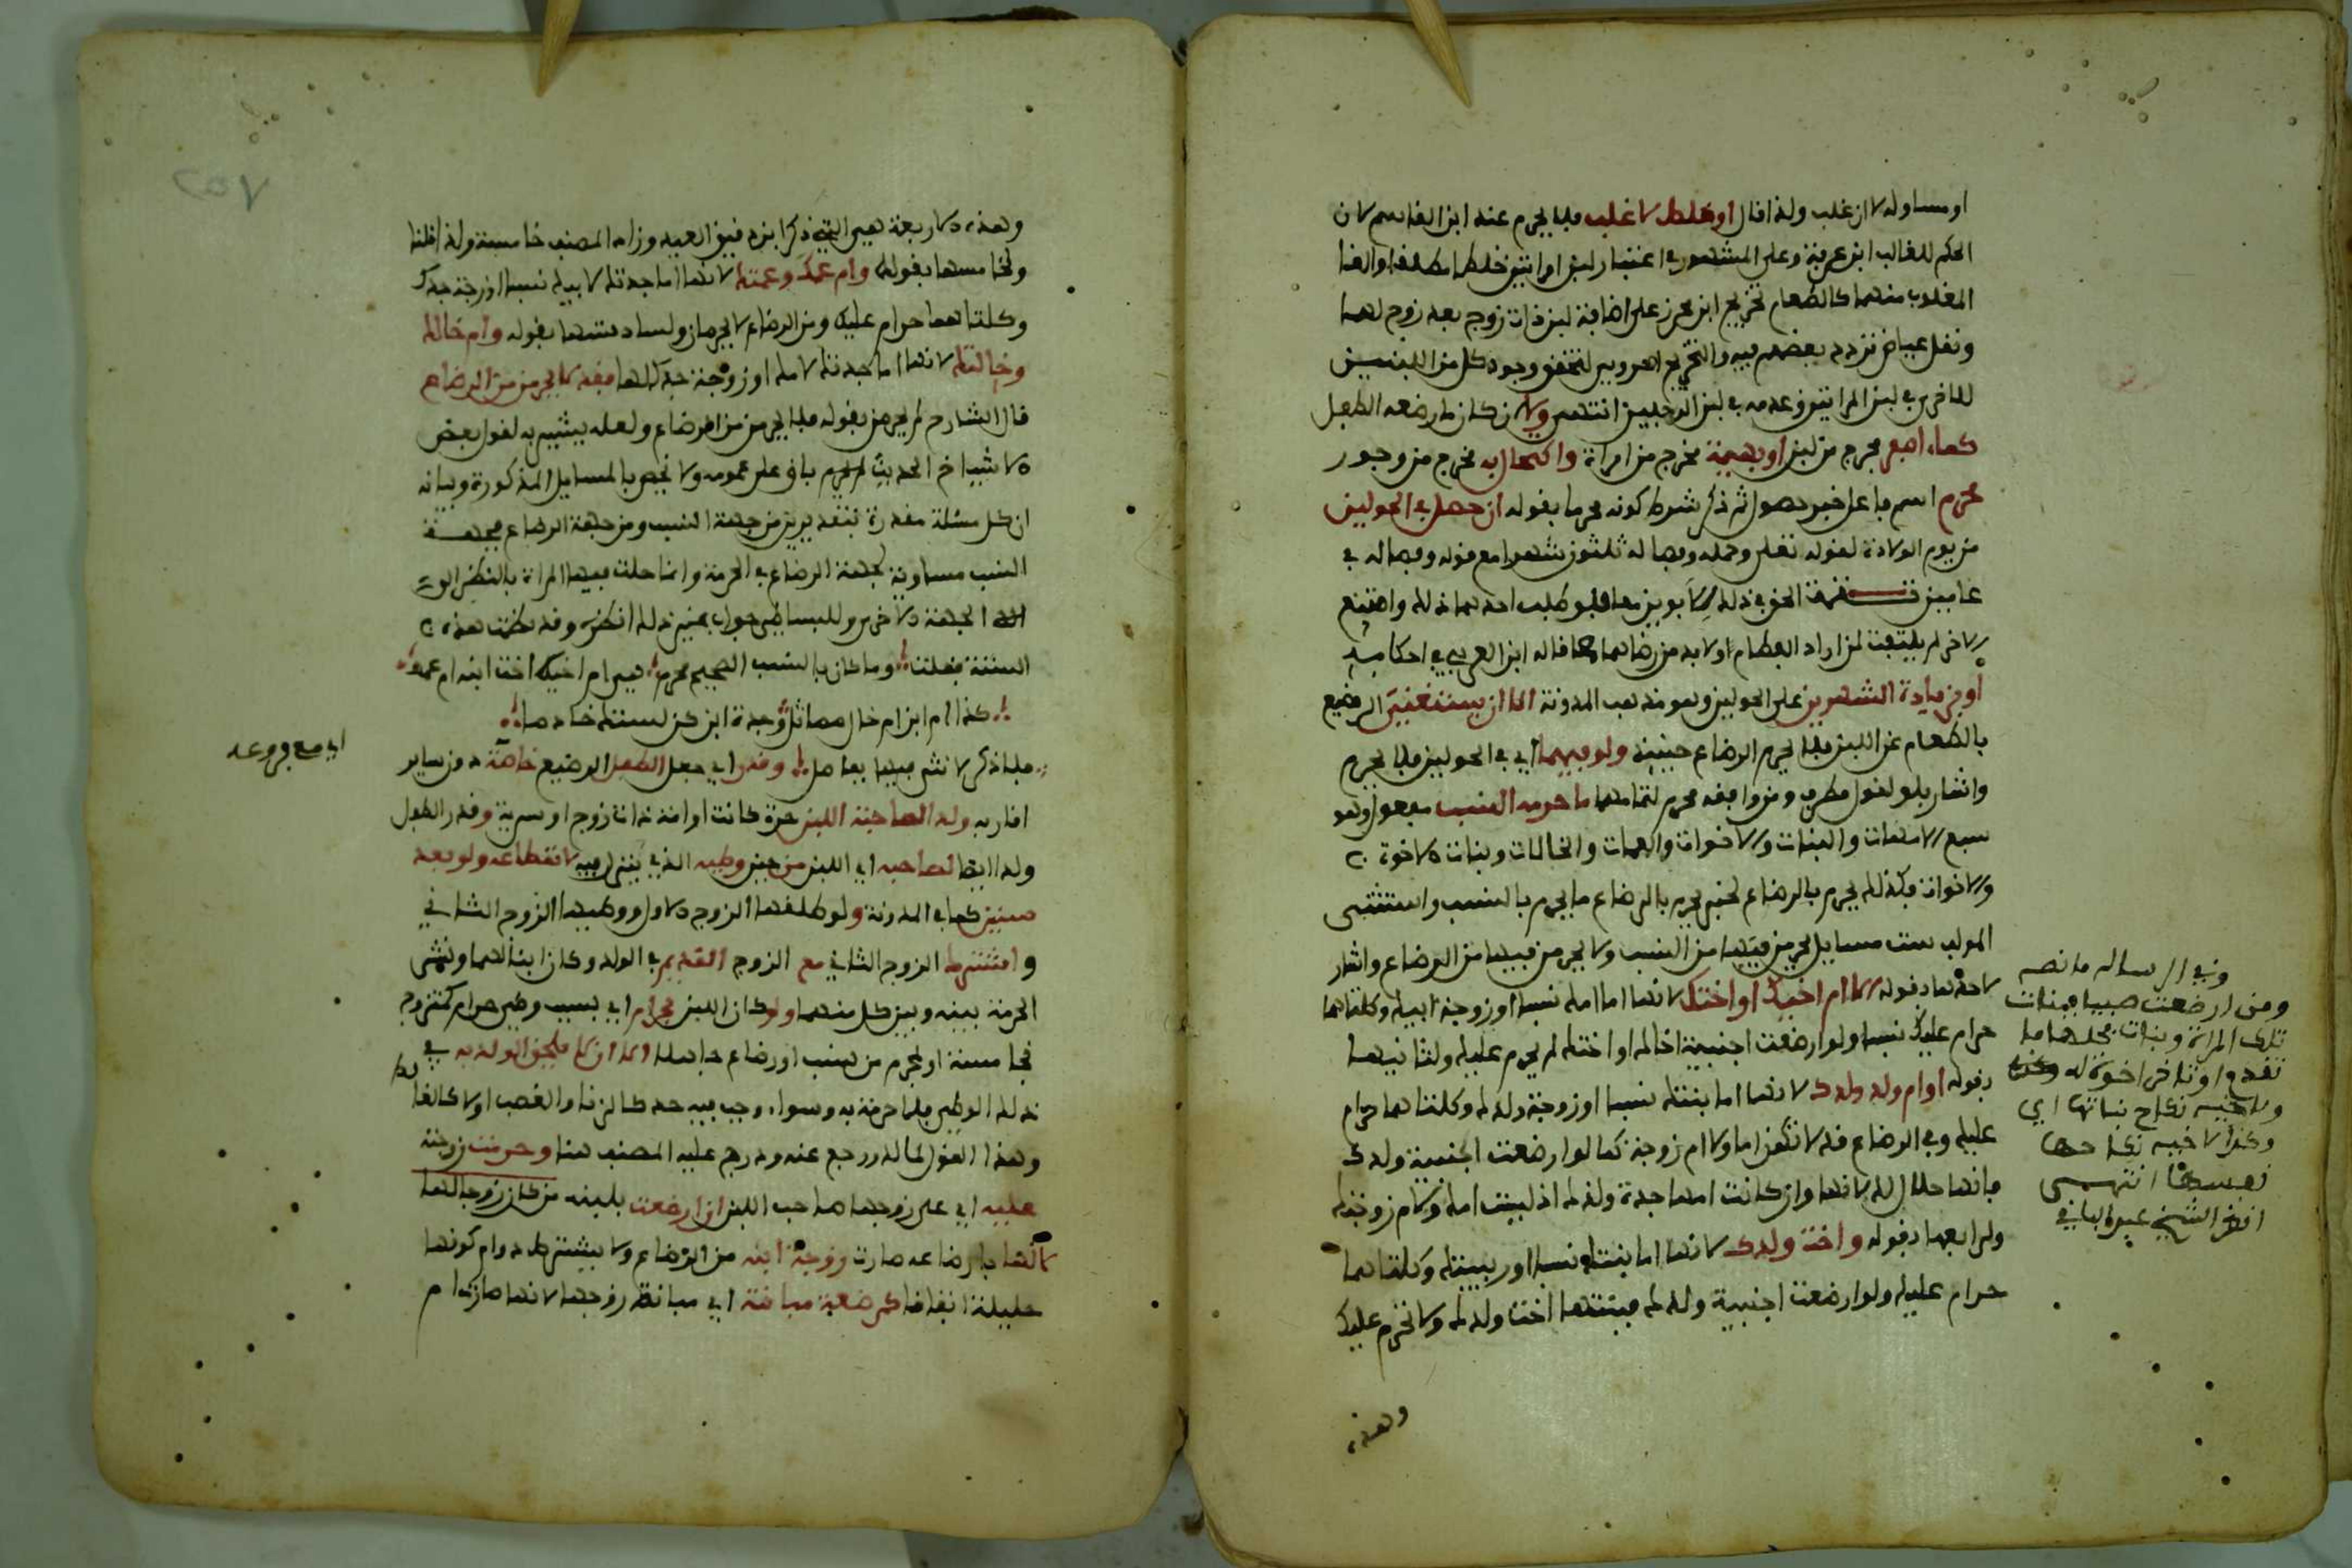 او مساو له لا ان غلب ولذا قال او خلط لا غلب فلا يحرم عند ابن القاسم لان
الحكم للغالب ابن عرفة وعلى المشهور في اعتبار لبن امراتين خلطا مطلقا والغا
المغلوب منهما كالطعام تخريج ابن محرز على اضافة لبن ذات زوج بعد زوج لهما
ونقل عياض تردد بعضهم فيه والتخريج احروي لتحقق وجود كل من اللبنين
للاخر في لبن المراتين وعدمه في لبن الرجلين انتهى ولا ان كان ما رضعه الطفل
كماء اصفر مخرج من لبن او بهيمة مخرج من امراة واكتحال به مخرج من وجور
محرم اسم فاعل خبر حصول ثم ذكر شرط كونه محرما بقوله ان حصل في الحولين
من يوم الولادة لقوله تعلى وحمله وفصاله ثلثون شهرا مع قوله وفصاله في
عامين الحق في ذلك للابوين معا فلو طلب احدهما ذلك وامتنع
الاخر لم يلتفت لمن اراد الفطام اولا بد من رضاهما معا قاله ابن العربي في احكامه
او بزيادة الشهرين على الحولين وهو مذهب المدونة الا ان يستغني الرضيع
بالطعام عن اللبن فلا يحرم الرضاع حينئذ ولو فيهما اي في الحولين فلا يحرم
واشار بلو لقول مطرف ومن وافقه محرم لتمامهما ما حرمه النسب مفعول وهو
سبع الامهات والبنات والاخوات والعمات والخالات وبنات الاخوة
والاخوات فكذلك يحرم بالرضاع لخبر يحرم بالرضاع ما يحرم بالنسب واستثنى
المولف ست مسايل يحرمن فيها من النسب ولا يحرمن فيها من الرضاع واشار
لاحدها بقوله الا ام اخيك او اختك لانها اما امك نسبا او زوجة ابيك وكلتاهما
حرام عليك نسبا ولو ارضعت اجنبية اخاك او اختك لم يحرم عليك ولثانيهما
بقوله او ام ولد ولدك لانها اما بنتك نسبا او زوجة ولدك وكلتاهما حرام
عليك وفي الرضاع قد لا تكون اما ولا ام زوجة كما لو ارضعت اجنبية ولدك
فانها حلال لك لانها وان كانت امها جدة ولدك اذ ليست امك ولا ام زوجتك
ولرابعها بقوله واخت ولدك لانها اما بنتك نسبا او ربيبتك وكلتاهما
حرام عليك ولو ارضعت اجنبية ولدك فبنتها اخت ولدك ولا تحرم عليك
وهذه
وفي الرسالة ما نصه
ومن ارضعت صبيا فبنات
تلك المراة وبنات فحلها ما
تقدم او تاخر اخوة له
ولاخيه نكاح بناتها اي
وكذا لاخيه نكاحها
نفسها انتهى
انظر الشيخ عبد الباقي
٢٥٧
وهذه الاربعة هي التي ذكر ابن دقيق العيد وزاد المصنف خامسة ولذا قلنا
ولخامسها بقوله وام عمك وعمتك لانها اما جدتك لابيك نسبا او زوجة جدك
وكلتاهما حرام عليك ومن الرضاع لا يحرمان ولسادستها بقوله وام خالك
وخالتك لانها اما جدتك لامك او زوجة جدك لها فقد لا يحرمن من الرضاع
قال الشارح لم يجزم بقوله فلا يحرمن من الرضاع ولعله يشير به لقول بعض
الاشياخ الحديث باق على عمومه ولا يخص بالمسايل المذكورة وبيانه
ان كل مسئلة مقدرة بتقديرين من جهة النسب ومن جهة الرضاع فجهة
النسب مساوية لجهة الرضاع في الحرمة وانما حلت فيها المراة بالنظر الى
الجهة الاخرى وللبساطي جواب بمعنى ذلك انظره وقد نظمت هذه
الستة فقلت وما كان بالنسب الصحيح محرم هي ام اخيك اخت ابنه ام عمه
كذا ام ابن ام خال مماثل وجدة ابن كن لستة خادما
فلما ذكر لا نثى فيها بفاصل وقدر اي جعل الطفل الرضيع خاصة دون ساير
اي مع فروعه
اقاربه ولدا لصاحبة اللبن حرة كانت او امة ذات زوج او سرية وقدر الطفل
ولدا ايضا لصاحبه اي اللبن من حين وطيه الذي ينزل فيه لانقطاعه ولو بعد
سنين كما في المدونة ولو طلقها الزوج الاول ووطيها الزوج الثاني
واشترك الزوج الثاني مع الزوج القديم في الولد وكان ابنا لهما ونشر
الحرمة بينه وبين كل منهما ولو كان اللبن بحرام اي بسبب وطي حرام كتزوج
خامسة او محرم من نسب او رضاع جاهلا الا ان لا يلحق الولد به في
ذلك الوطي فلا حرمة به وسواء وجب فيه حد كالزنا والغصب او لا كالغا
وهذا القول لمالك ورجع عنه ودرج عليه المصنف هنا وحرمت زوجته
عليه اي على زوجها صاحب اللبن ان ارضعت بلبنه من كان زوجا لها
لانها بارضاعه صارت زوجة ابنه من الرضاع ولا يشترط دوام كونها
حليلة اتفاقا كمرضعة مبانته اي مبانة زوجها لانها صارت ام